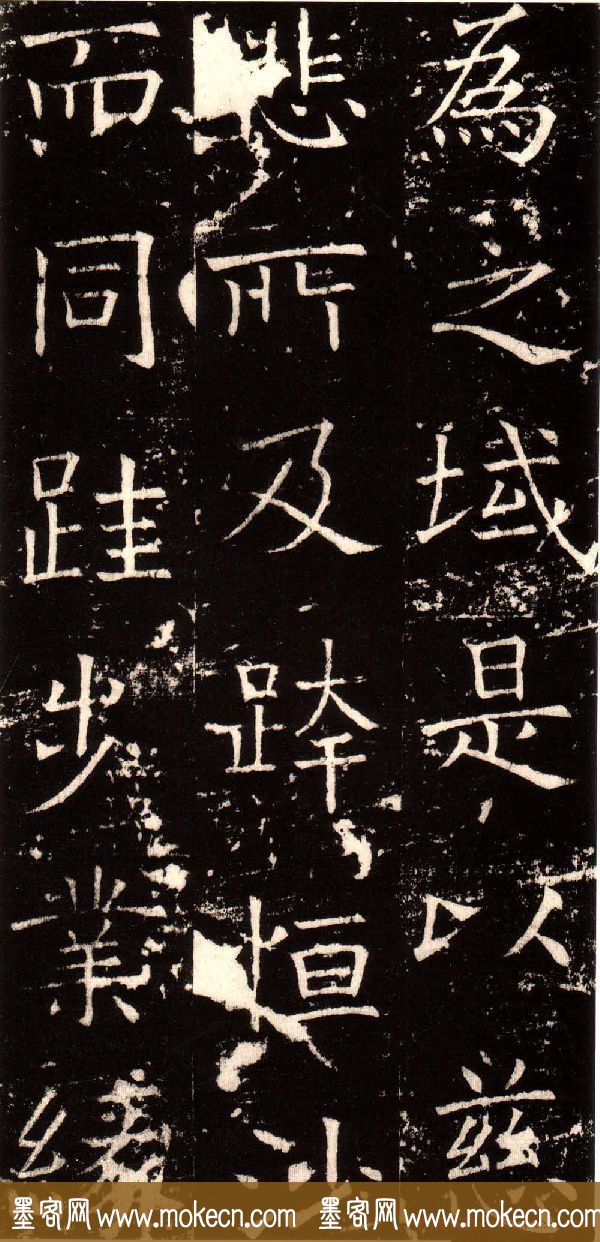 為之域是以慈
悲所及跨恒沙
而同跬步業緣
墨客网 www.mokecn.com 墨客网 www.mokecn.com